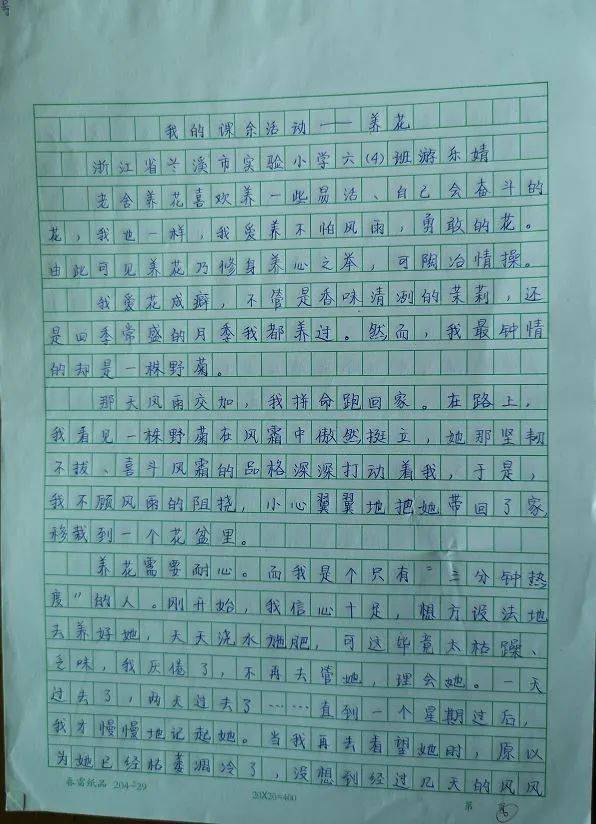 号
我的课余活动——养花
浙江省兰溪市实验小学六(4)班游乐婧
老舍养花喜欢养一些易活、自己会奋斗的
花，我也一样，我爱养不怕风雨，勇敢的花。
由此可见养花乃修身养心之举，可陶冶情操。
我爱花成癖，不管是香味清冽的茉莉，还
是四季常盛的月季我都养过。然而，我最钟情
的却是一株野菊。
那天风雨交加，我拼命跑回家。在路上，
我看见一株野菊在风霜中傲然挺立，她那坚韧
不拔、喜斗风霜的品格深深打动着我，于是，
我不顾风雨的阻挠，小心翼翼地把她带回了家，
移栽到一个花盆里。
养花需要耐心。而我是个只有“三分钟热
度”的人。刚开始，我信心十足，想方设法地
去养好她，天天浇水施肥，可这毕竟太枯躁、
乏味，我厌倦了，不再去管她，理会她。一天
过去了，两天过去了……直到一个星期过后，
我才慢慢地记起她。当我再去看望她时，原以
为她已经枯萎凋冷了，没想到经过几天的风风
春雷纸品 204-29
20X20=400
第